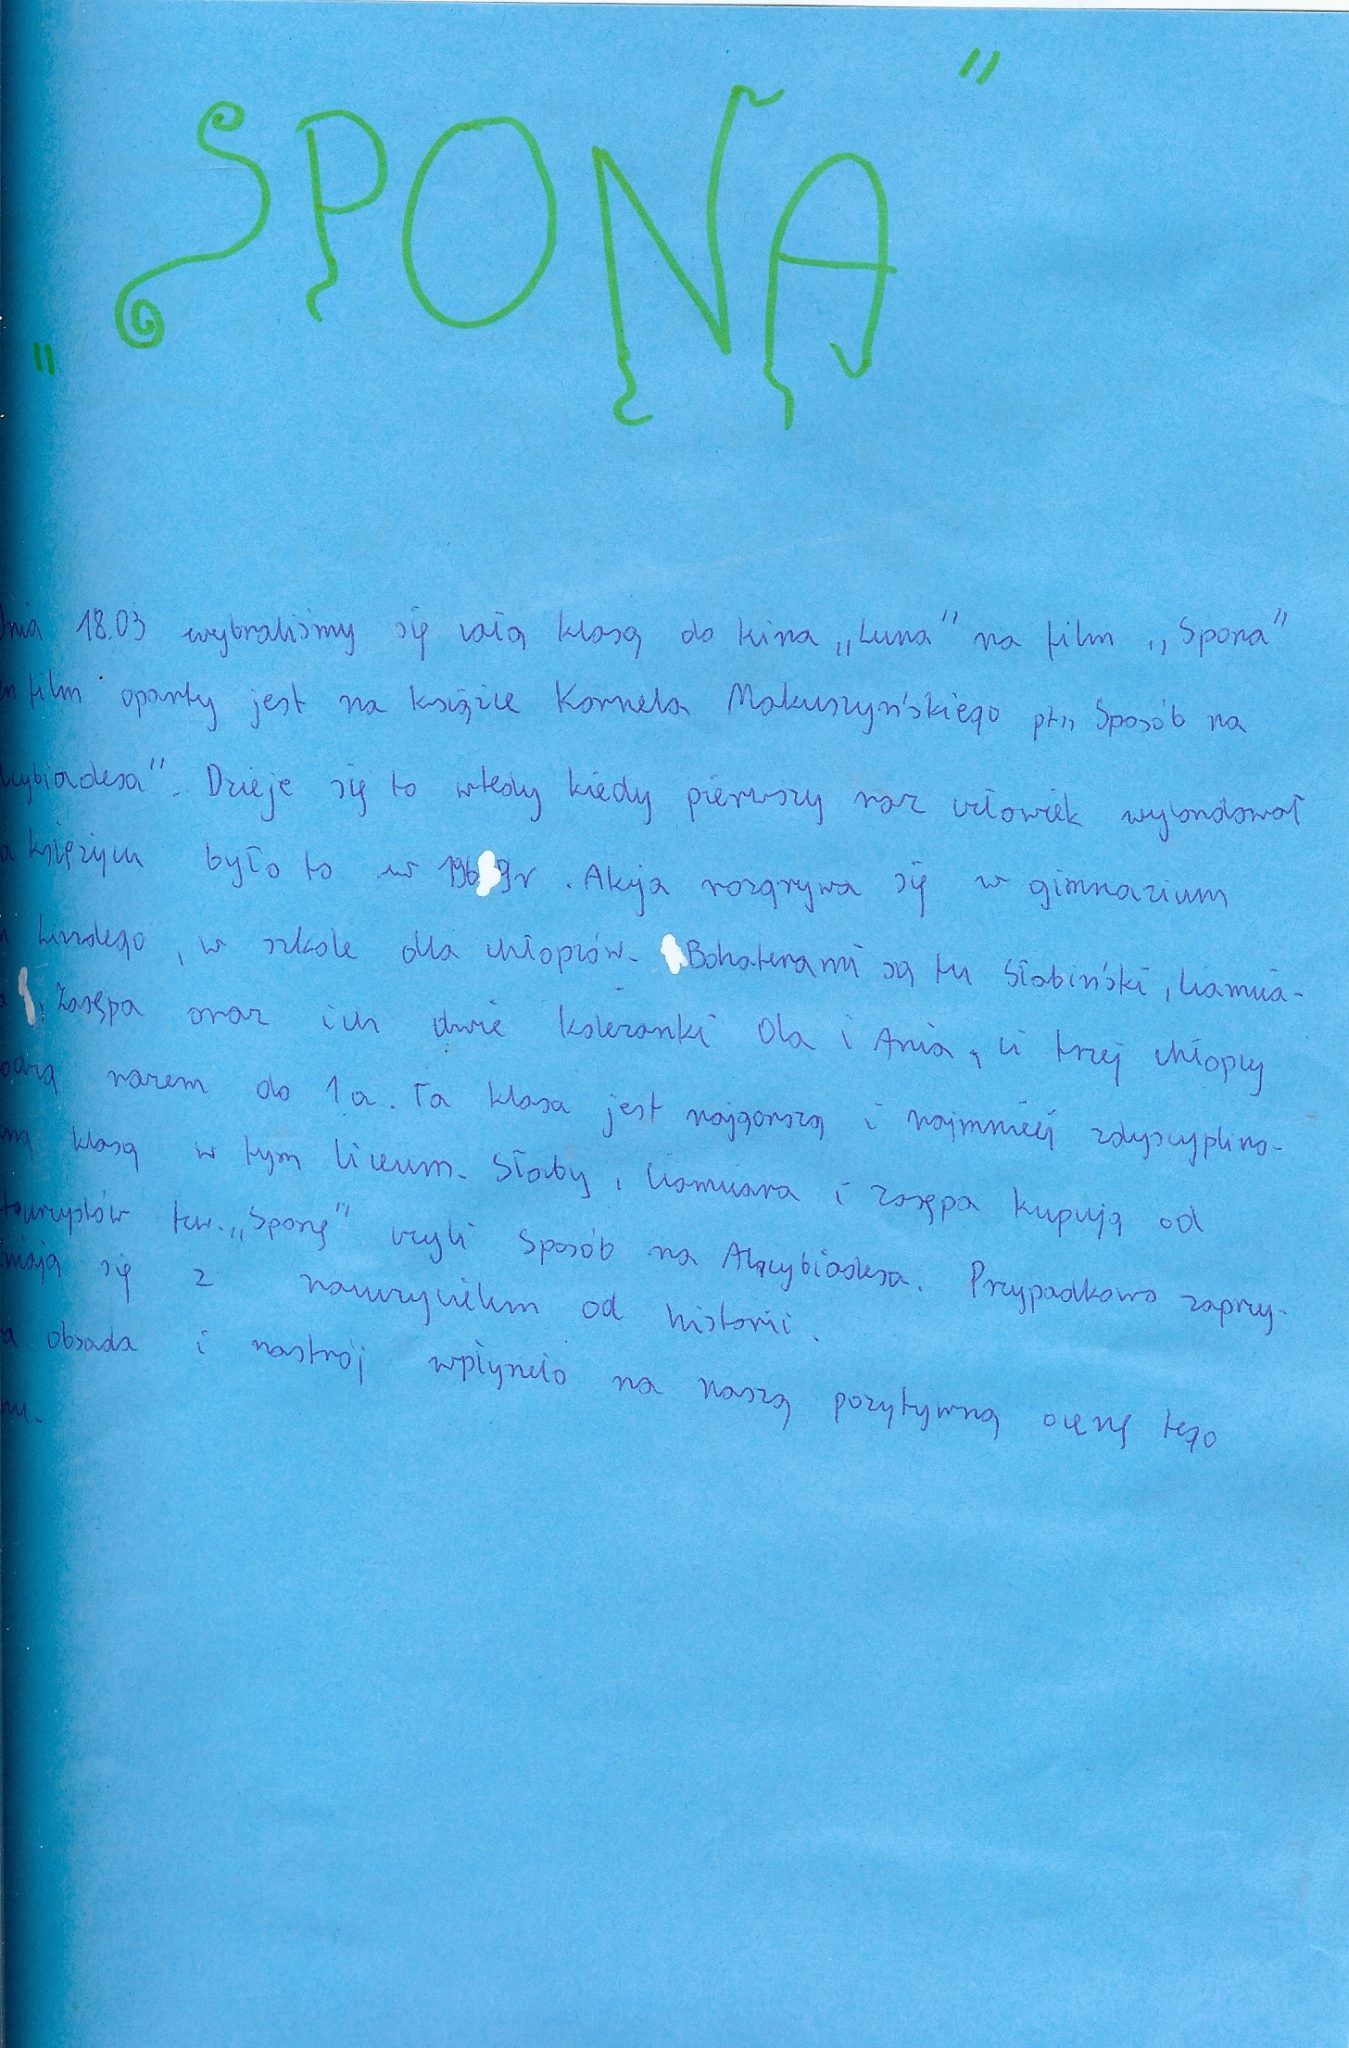 „SPONA"
dnia 18.03 wybraliśmy się całą klasą do kina „Luna" na film „Spona"
en film oparty jest na książce Kornela Makuszyńskiego pt„ Sposób na
lcybiadesa". Dzieje się to wtedy kiedy pierwszy raz człowiek wylondował
a księżycu było to w 1969r. Akcja rozgrywa się w gimnazium
Lindego, w szkole dla chłopców. Bohaterami są tu Słabiński, Ciamcia-
a, Zasępa oraz ich dwie koleżanki Ola i Ania, ci trzej chłopcy
odzą razem do 1a. Ta klasa jest najgorszą i najmniej zdyscyplino-
ną klasą w tym liceum. Słaby, Ciamciara i Zasępa kupują od
turzystów tzw. „Sponę" czyli Sposób na Alcybiadesa. Przypadkowo zaprzy-
niają się z nauczycielem od historii.
a obsada i nastrój wpłyneło na naszą pozytywną ocenę tego
mu.